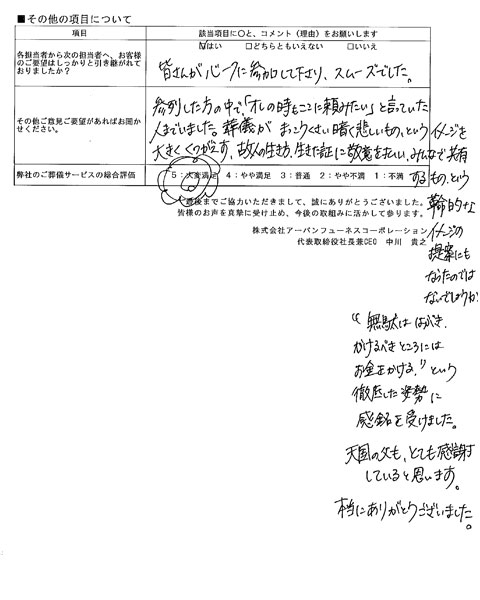 ■その他の項目について
項目
該当項目に○と、コメント（理由）をお願いします
各担当者から次の担当者へ、お客様
のご要望はしっかりと引き継がれて
おりましたか？
はい □どちらともいえない □いいえ
皆さんが 心 一つに 参加して下さり、スムーズでした。
その他ご意見ご要望があればお聞か
せください。
参列した方の中で、「オレの時もここに頼みたい」と言っていた
人までいました。葬儀が まっこうくさい暗く悲しいもの、という イメージを
大きくくつがえす、故人の生き方、生きた証に 敬意をはらい、みんなで 共有
弊社のご葬儀サービスの総合評価
5：大変満足 4：やや満足 3：普通 2：やや不満 1：不満
するもの、という
革命的な
イメージの
提案にも
なったのでは
ないでしょうか
最後までご協力いただきまして、誠にありがとうございました。
皆様のお声を真摯に受け止め、今後の取組みに活かして参ります。
株式会社アーバンフューネスコーポレーション
代表取締役社長兼CEO 中川 貴之
“無駄は はぶき、
かけるべきところには
お金をかける。” という
徹底した姿勢に
感銘を受けました。
天国の父も、とても感謝
していると思います。
本当にありがとうございました。